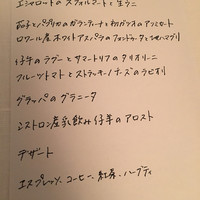 エシャロットのスフォルマートと生ウニ
茄子とパプリカのガランティーナと初ガツオのアッソルート
ロワール産ホワイトアスパラのフォンドゥータと地ハマグリ
仔牛のラグーとサマートリュフのタリオリーニ
フルーツトマトとストラッキーノチーズのラビオリ
グラッパのグラニータ
シストロン産乳飲み仔羊のアロスト
デザート
エスプレッソ、コーヒー、紅茶、ハーブティ